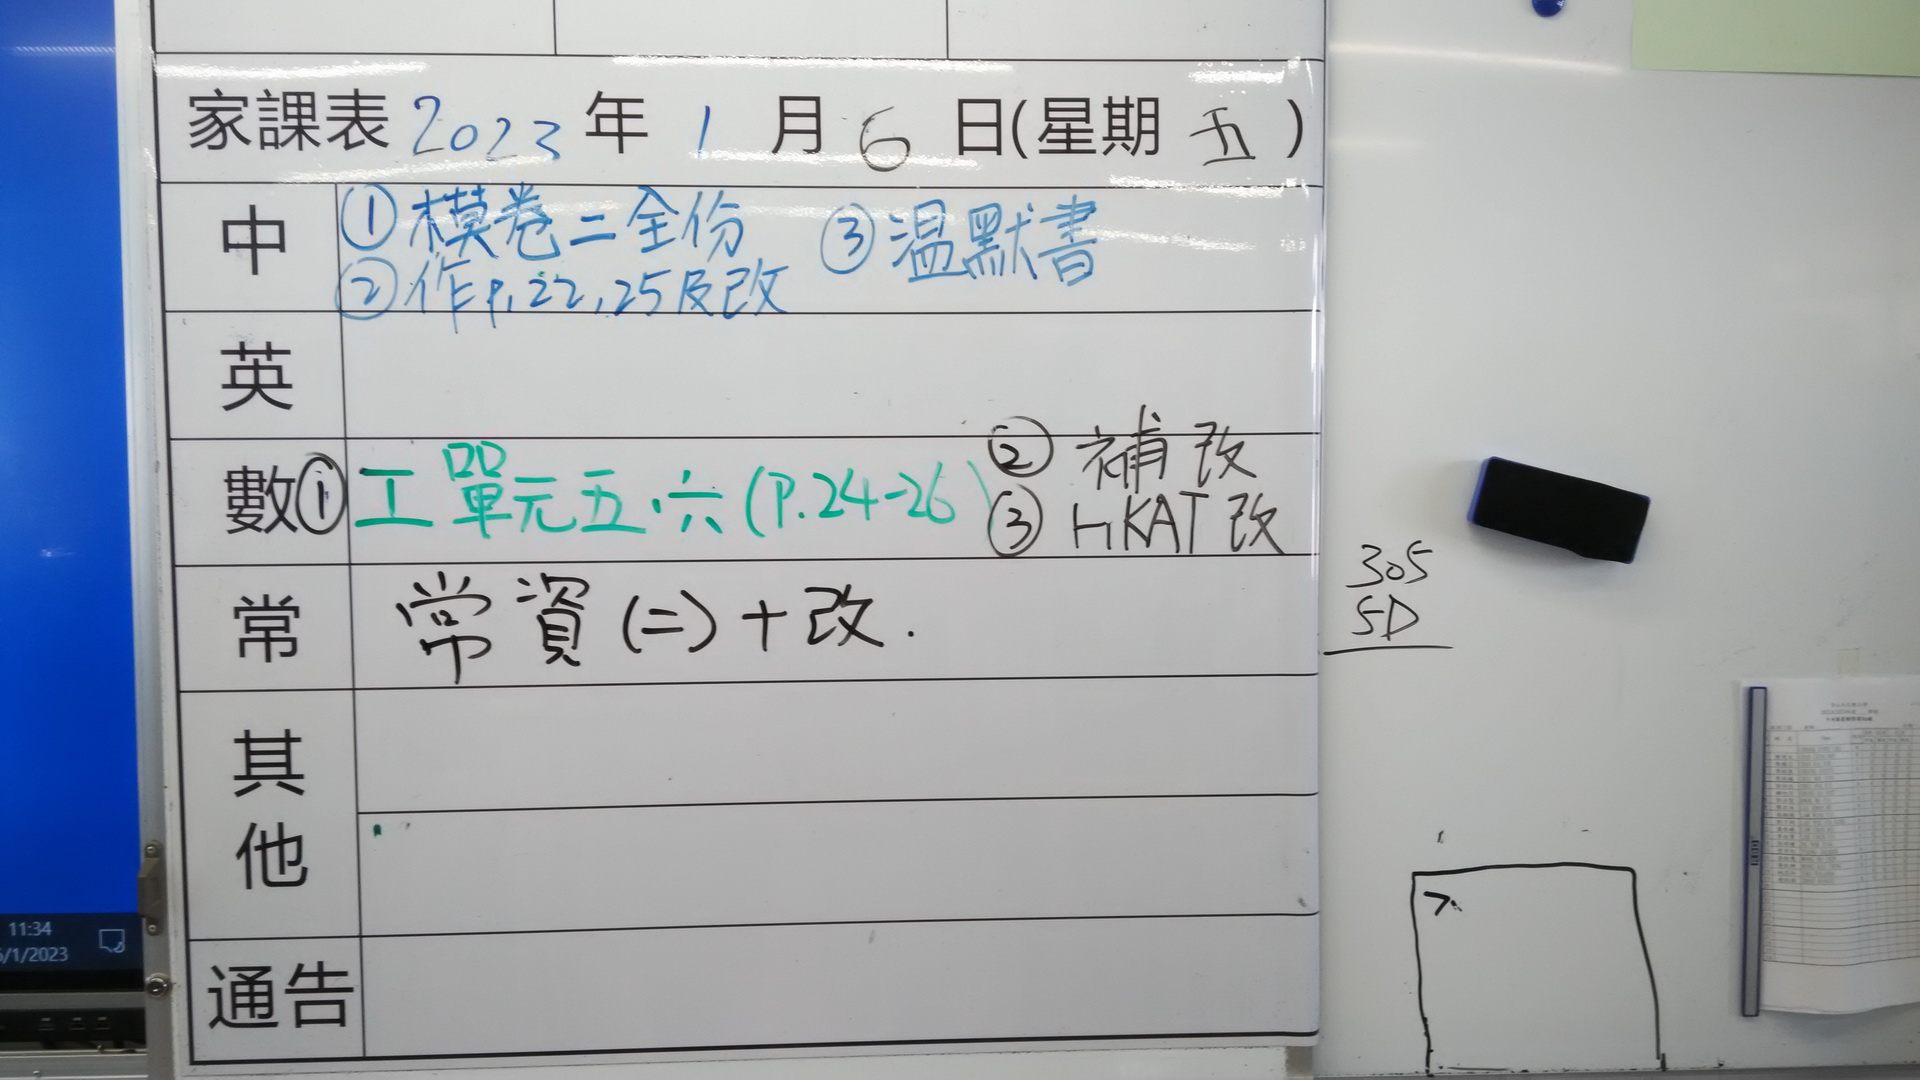 家課表 2023 年 1 月 6 日(星期 五 )
中 ① 模卷二全份 ③ 溫默書
② 作P.22,25及改
英
數 ① 工 單元五.六(P.24-26) ② 補改
③ HKAT 改
常 常資(二)+改.
其他
通告
305
5D
11:34
6/1/2023